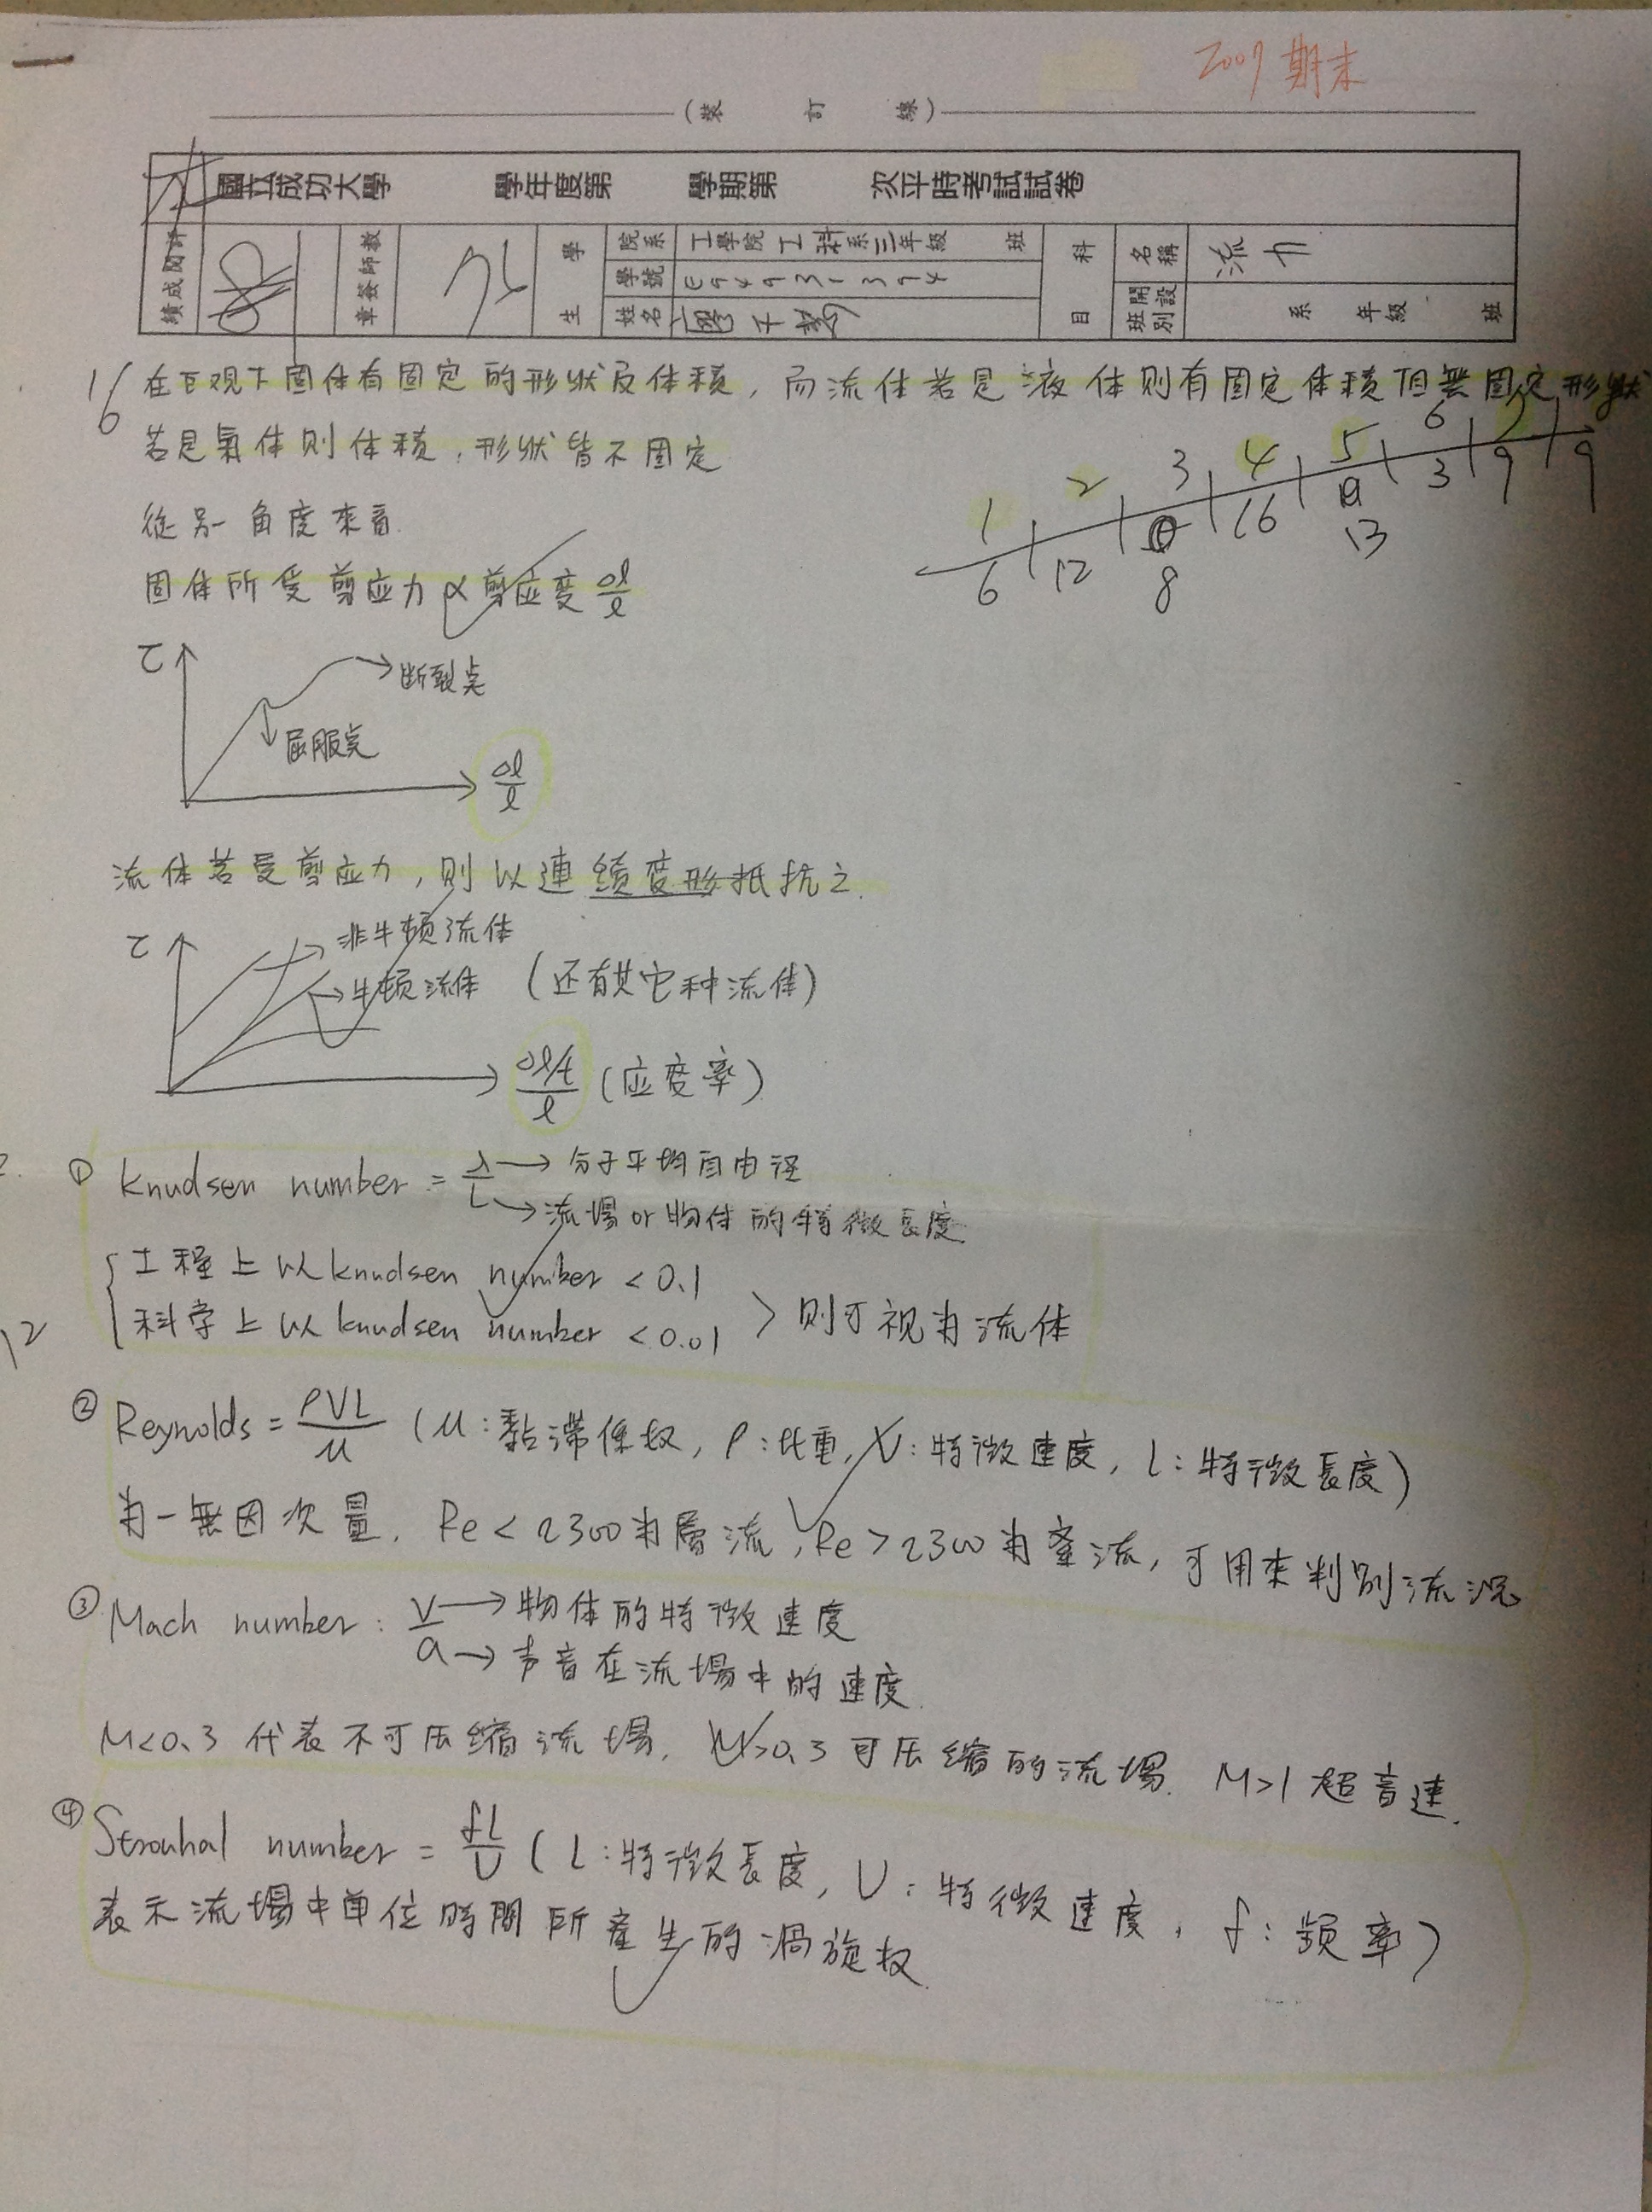 2007 期末
(裝 訂 線)
國立成功大學 學年度第 學期第 次平時考試試卷
績成閱評 章簽師教 學生 院系 工學院工科系三年級 班 科目 名稱 流力
學號 E94931394
姓名 開設班別 系 年級 班
1 在巨观下固体有固定的形狀及体積,而流体若是液体則有固定体積但無固定形狀
6
若是氣体則体積,形狀皆不固定
從另一角度來看
固体所受剪应力∝剪应变 Δl/l
1 2 3 4 5 6 7
6 12 8 16 13 3 9 9
τ
断裂点
屈服点
Δl/l
流体若受剪应力,則以連續变形抵抗之.
τ
非牛頓流体
牛顿流体 (还有其它种流体)
Δl/t / l (应变率)
2. ① Knudsen number = λ/L
λ → 分子平均自由徑
L → 流場or物体的特徵長度.
工程上以knudsen number < 0.1
科学上以knudsen number < 0.01 > 則可視為流体
12
② Reynolds = ρVL/μ (μ:黏滯係数, ρ:比重, V:特徵速度, l:特徵長度)
为一無因次量, Re < 2300为層流, Re > 2300为紊流, 可用來判別流況
③ Mach number : V/a
V → 物体的特徵速度
a → 声音在流場中的速度.
M<0.3 代表不可压縮流場, M>0.3 可压縮的流場. M>1 超音速.
④ Strouhal number = fL/U (L:特徵長度, U:特徵速度, f:頻率)
表示流場中單位時間所產生的渦旋数.